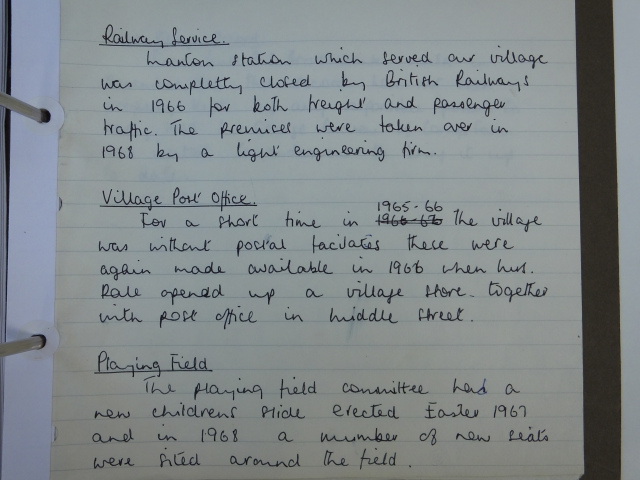 Railway Service.
Manton station which served our village
was completly closed by British Railways
in 1966 for both freight and passenger
traffic. The premices were taken over in
1968 by a light engineering firm.
Village Post Office.
1965-66
For a short time in 1966-67 The village
was without postal facilates these were
again made available in 1966 when mrs.
Rale opened up a village store. together
with post office in middle street.
Playing Field
The playing field committee had a
new childrens slide erected Easter 1967
and in 1968 a number of new seats
were sited around the field.